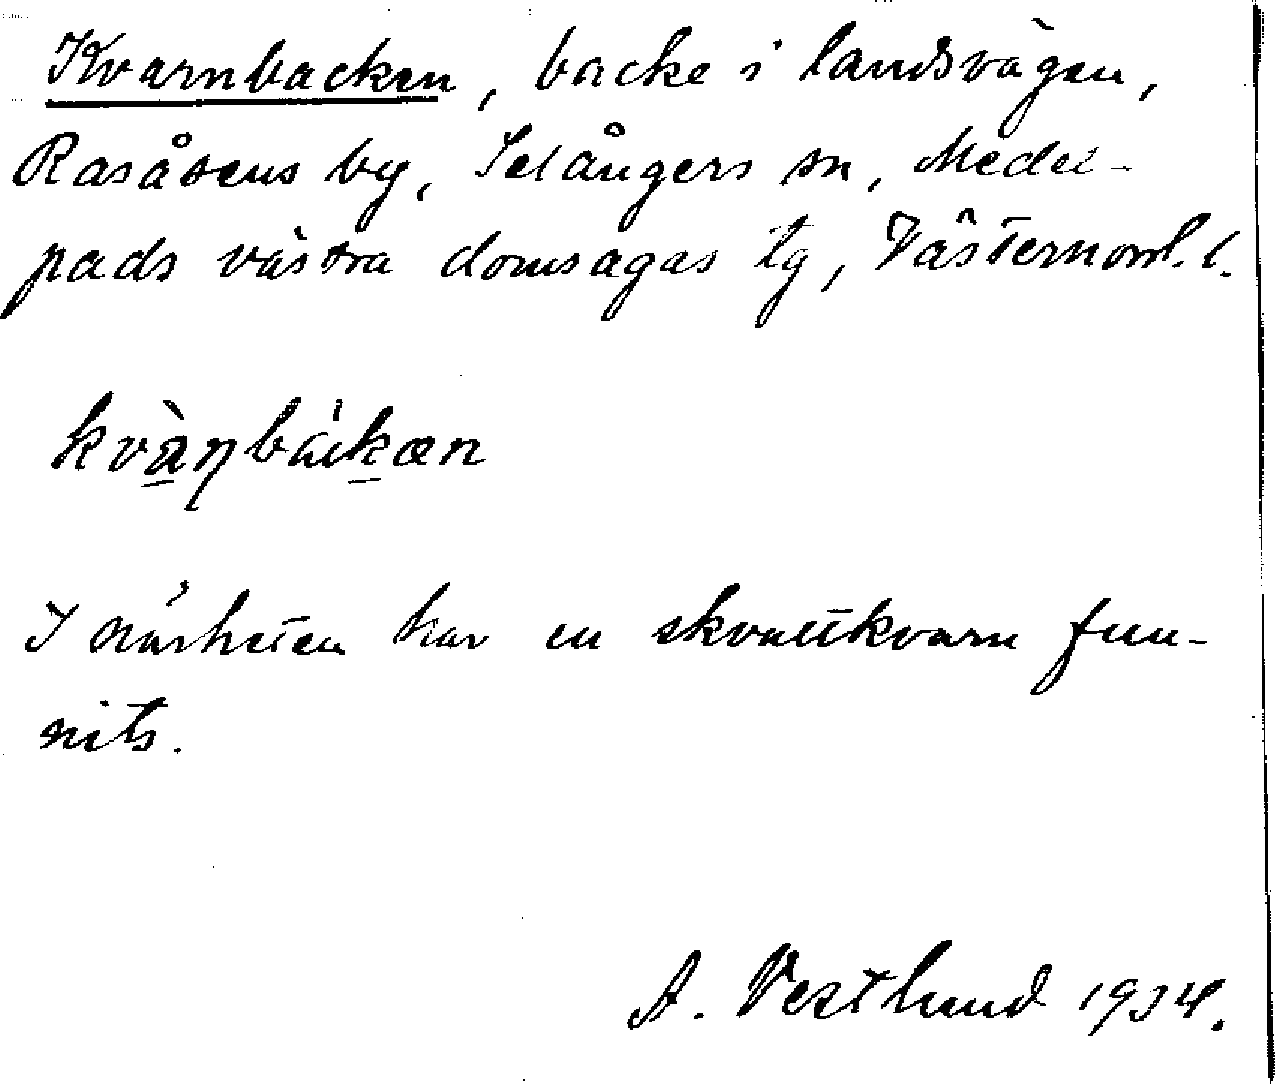 Kvarnbacken, backe i landsvägen,
Rasåsens by, Selångers sn, Medel-
pads västra domsagas tg, Västernorrl. l.
kvàṇbákæn
I närheten har en skvaltkvarn fun-
nits.
A. Vestlund 1934.